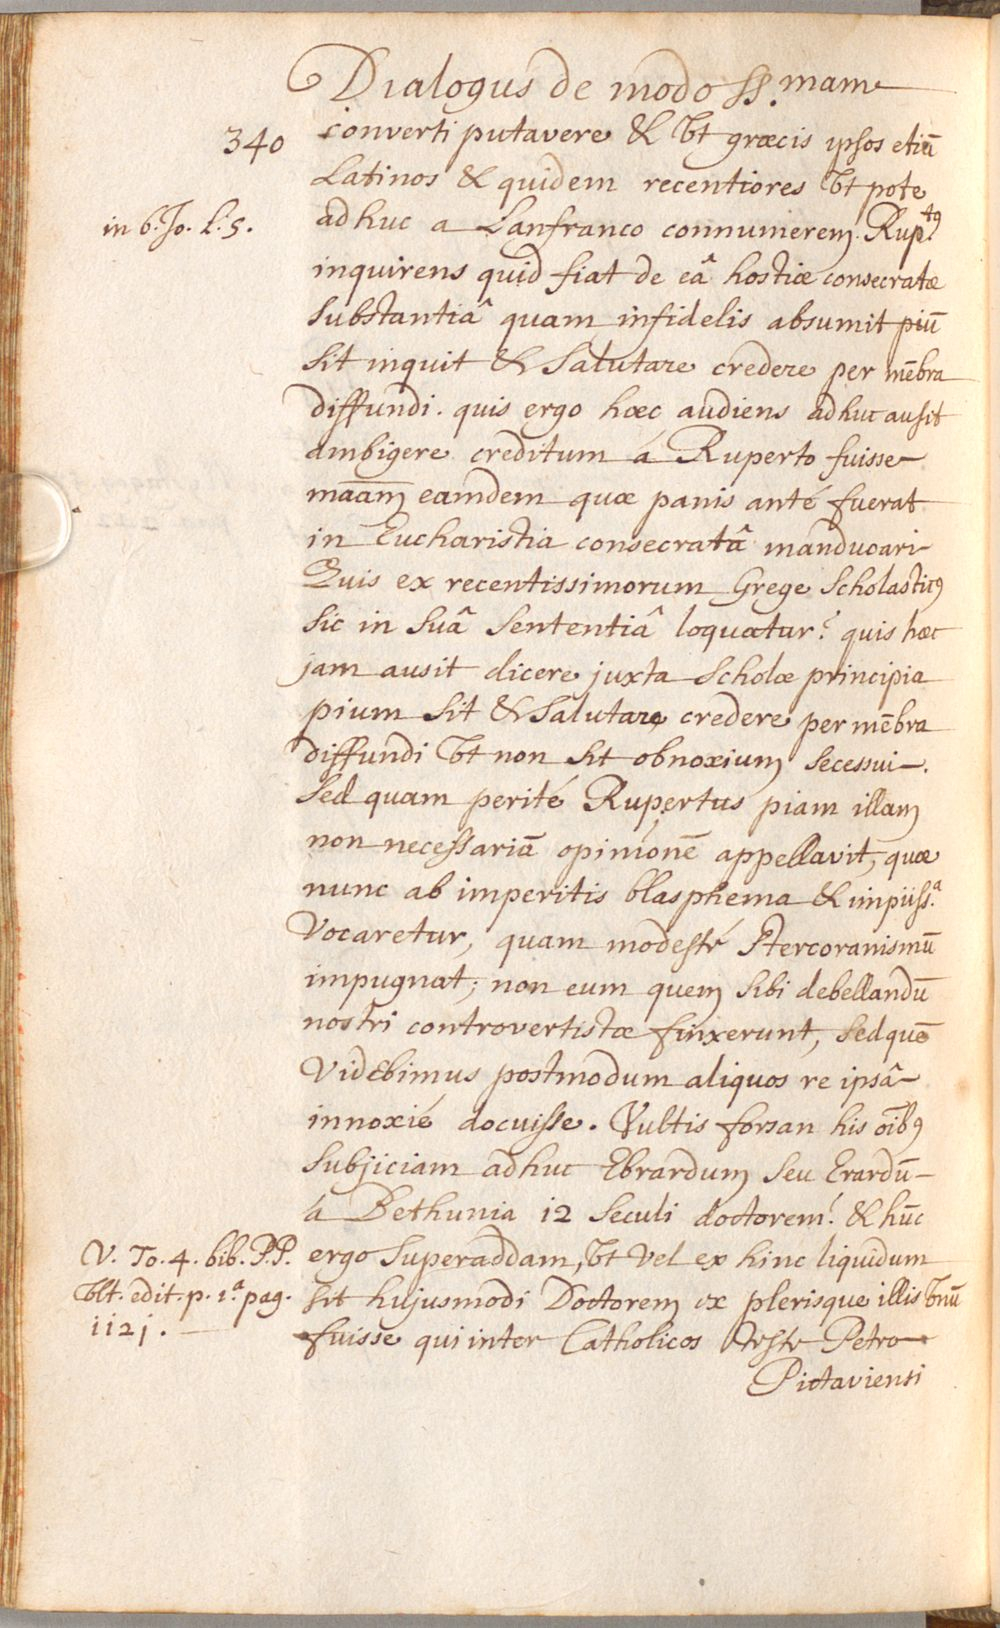 Dialogus de modo ss. mam
340
converti putavere & Vt græcis ipsos etiū
Latinos & quidem recentiores Vt pote
in 6. Jo. l. 5.
adhuc a Lanfranco connumerem. Rup.tꝰ
inquirens quid fiat de eâ hostiæ consecratæ
Substantiâ quam infidelis absumit piū
Sit inquit & Salutare credere per mēbra
diffundi. quis ergo hæc audiens adhuc ausit
ambigere creditum á Ruperto fuisse
māam eamdem quæ panis anté fuerat
in Eucharistia consecratâ manducari
Quis ex recentissimorum Grege Scholasticꝰ
Sic in Suâ Sententiâ loquatur? quis hæc
jam ausit dicere juxta Scholæ principia
pium Sit & Salutare credere per mēbra
diffundi Vt non Sit obnoxium Secessui.
Sed quam perité Rupertus piam illam
non necessariā opiniónē appellavit, quæ
nunc ab imperitis blasphema & impiiss.a
Vocaretur, quam modesté Stercoranismū
impugnat; non eum quem Sibi debellandū
nostri controvertistæ finxerunt, Sed quē
Videbimus postmodum aliquos re ipsâ
innoxié docuisse. Vultis forsan his oībꝰ
Subjiciam adhuc Ebrardum Seu Erardū
á Bethunia 12 Seculi doctorem? & hūc
V. To. 4. bib. P.P.
ergo Superaddam, Vt Vel ex hinc liquidum
Vlt. edit. p. 1.a pag.
Sit hujusmodi Doctorem ex plerisque illis Vnū
1121.
fuisse qui inter Catholicos teste Petro
Pictaviensi